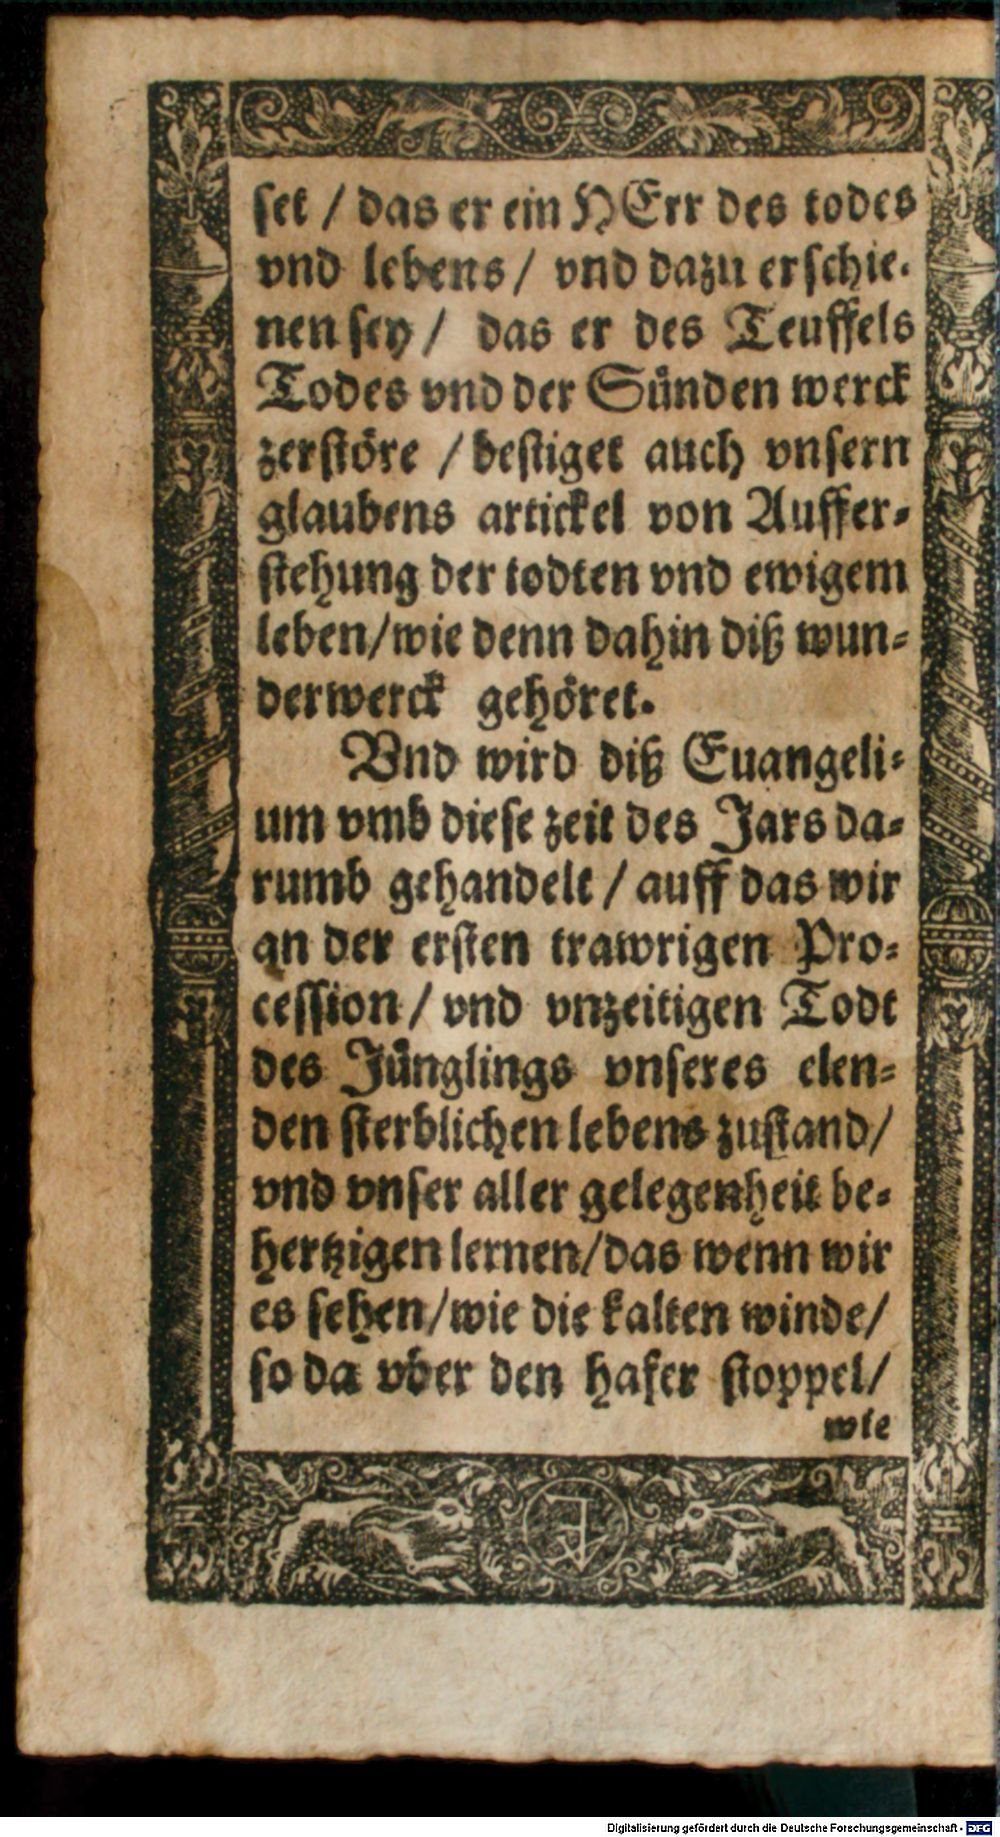 set / das er ein HErr des todes
vnd lebens / vnd dazu erschie-
nen sey / das er des Teuffels
Todes vnd der Sünden werck
zerstöre / bestiget auch vnsern
glaubens artickel von Auffer-
stehung der todten vnd ewigem
leben/wie denn dahin diß wun-
derwerck gehöret.
Vnd wird diß Euangeli-
um vmb diese zeit des Jars da-
rumb gehandelt / auff das wir
an der ersten trawrigen Pro-
cession / vnd vnzeitigen Todt
des Jünglings vnseres elen-
den sterblichen lebens zustand/
vnd vnser aller gelegenheit be-
hertzigen lernen/das wenn wir
es sehen/wie die kalten winde/
so da vber den hafer stoppel/
wie
Digitalisierung gefördert durch die Deutsche Forschungsgemeinschaft - DFG